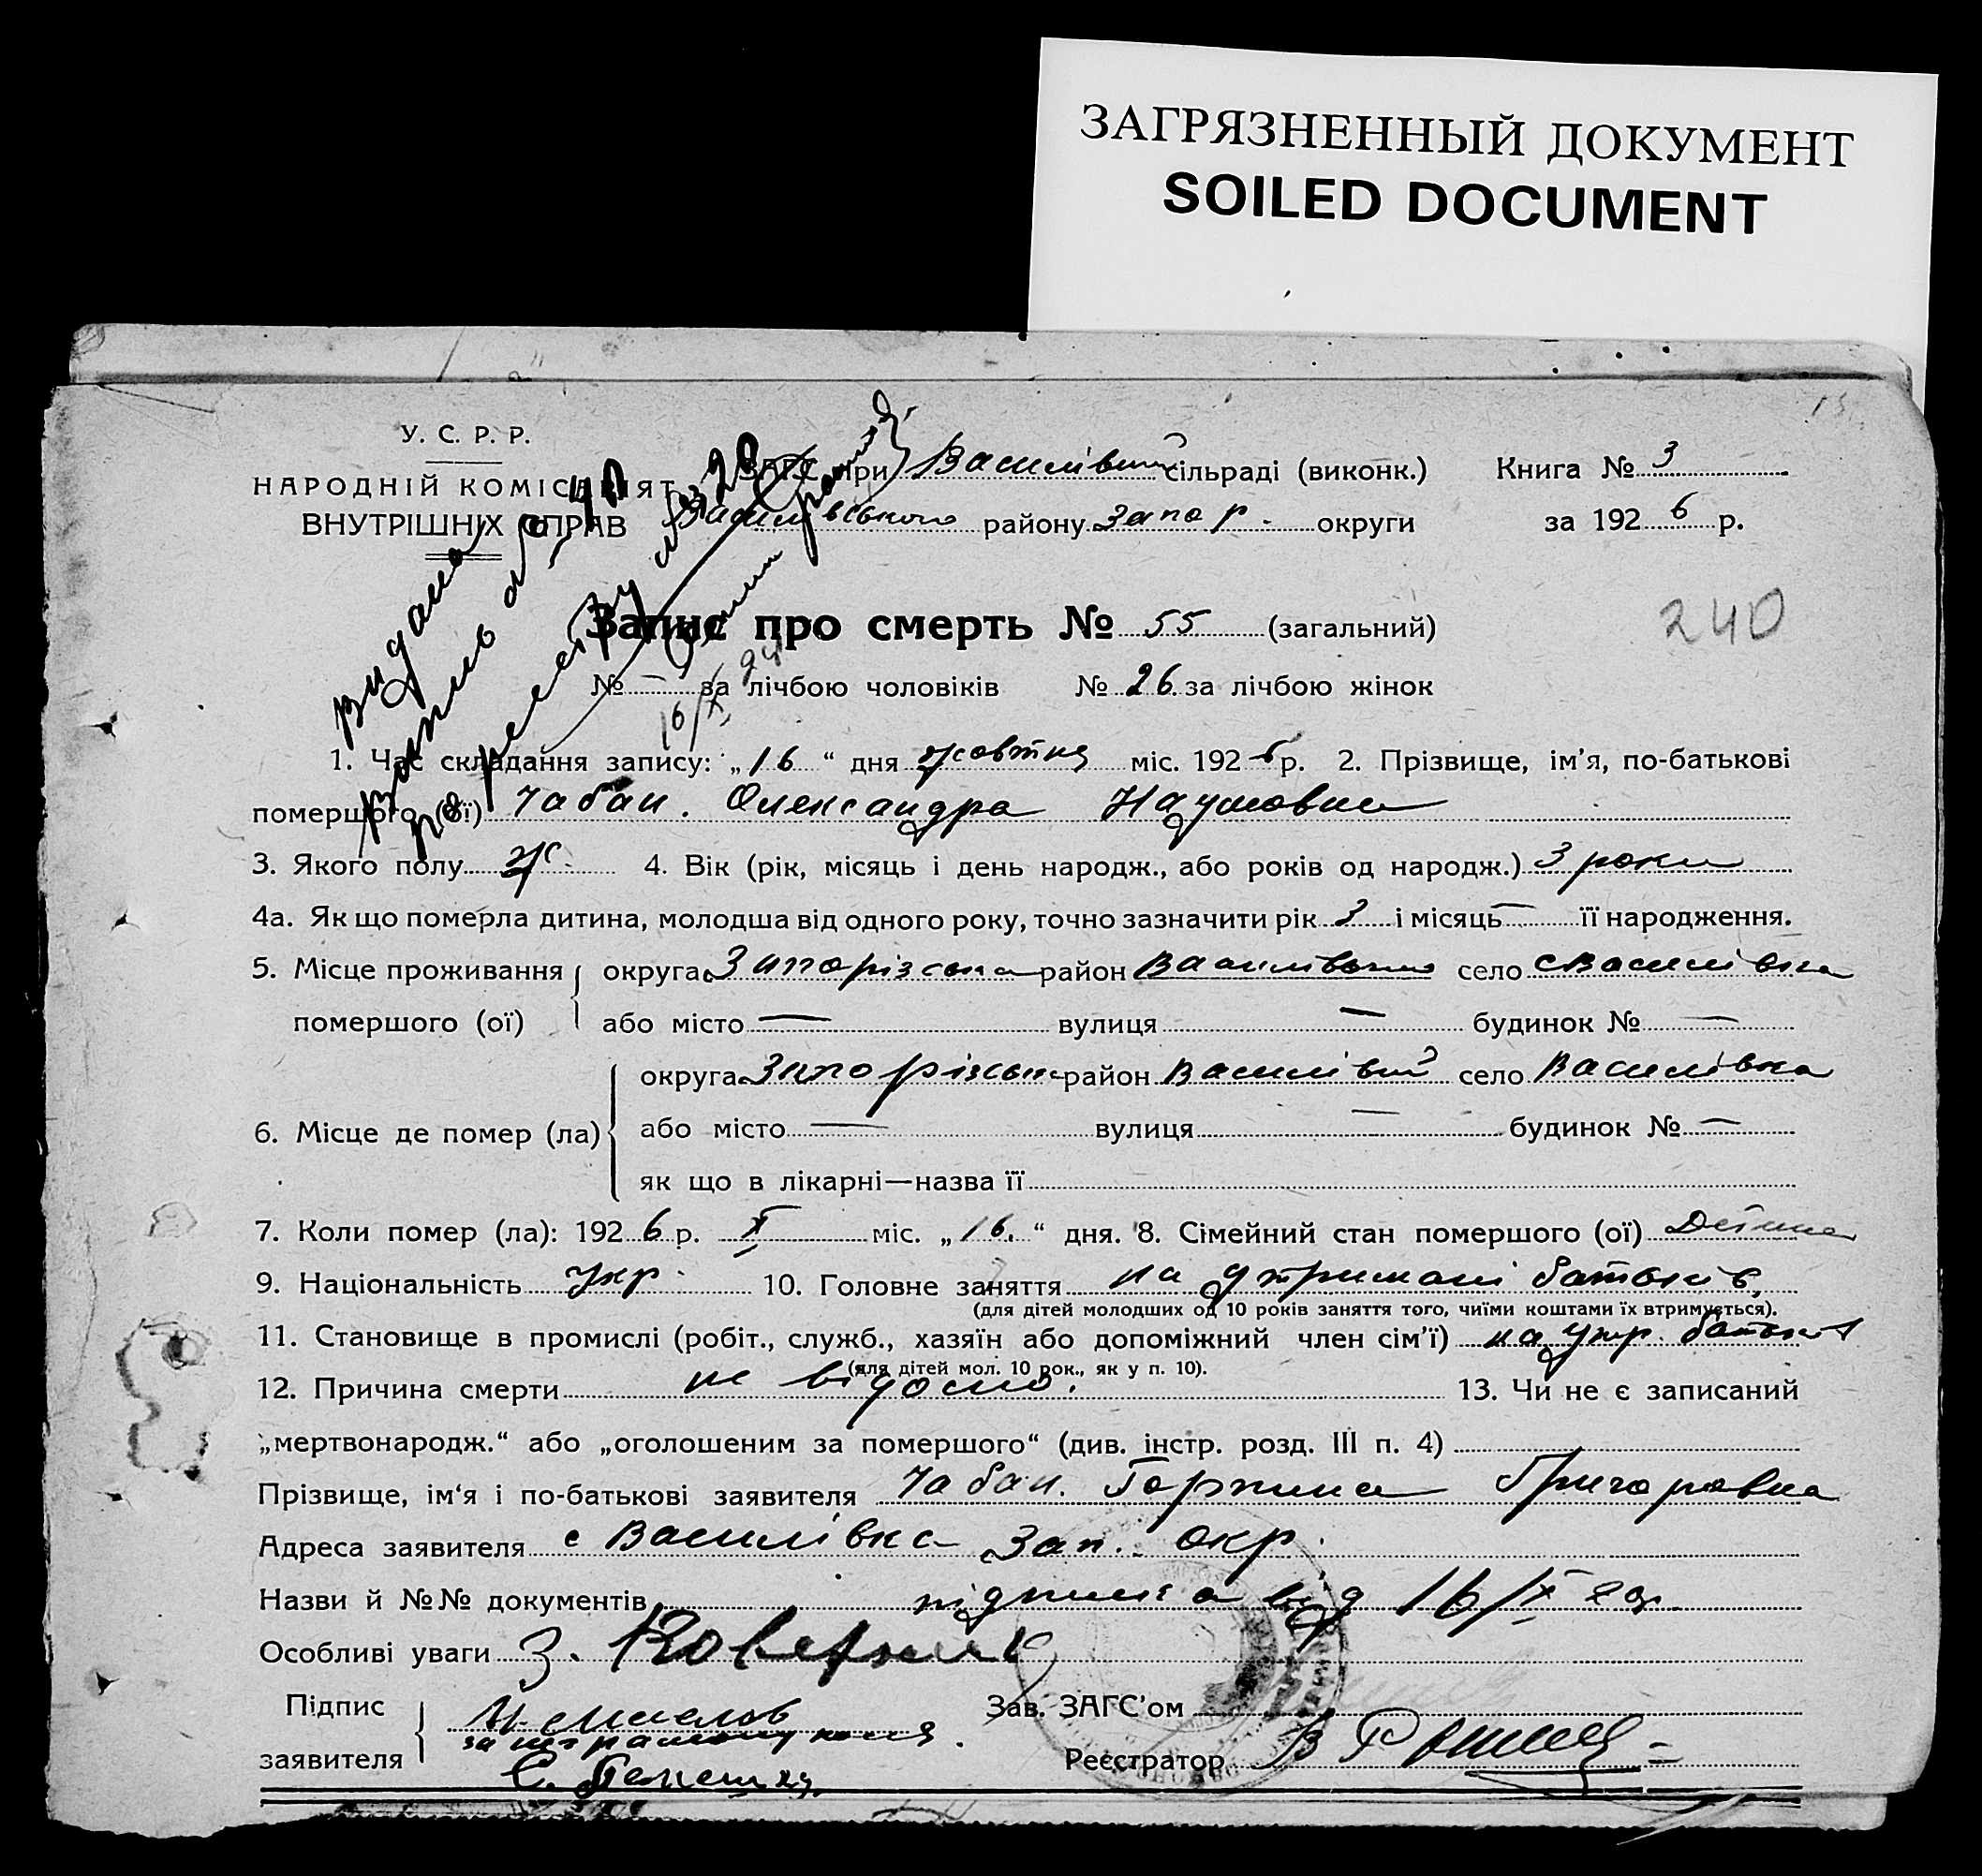 ЗАГРЯЗНЕННЫЙ ДОКУМЕНТ
SOILED DOCUMENT
У. С. Р. Р.
НАРОДНІЙ КОМІСАРІЯТ
ВНУТРІШНІХ СПРАВ
ЗАГС при Василівській сільраді (виконк.) Книга № 3
Василівського району Запор. округи за 1926 р.
240
Запис про смерть № 55 (загальний)
№ — за лічбою чоловіків № 26 за лічбою жінок
1. Час складання запису: „16“ дня жовтня міс. 1926 р. 2. Прізвище, ім'я, по-батькові
помершого (ої) Чабан. Олександра Наумовна
3. Якого полу ж. 4. Вік (рік, місяць і день народж., або років од народж.) 3 роки
4а. Як що померла дитина, молодша від одного року, точно зазначити рік 3 і місяць — її народження.
5. Місце проживання помершого (ої) округа Запорізська район Василівський село с Василівка
або місто — вулиця — будинок № —
6. Місце де помер (ла) округа Запорізська район Василівсий село Василівка
або місто — вулиця — будинок № —
як що в лікарні—назва її
7. Коли помер (ла): 1926 р. X міс. „16.“ дня. 8. Сімейний стан помершого (ої) Дитина
9. Національність Укр. 10. Головне заняття на утримані батьків,
(для дітей молодших од 10 років заняття того, чиїми коштами їх втримується).
11. Становище в промислі (робіт., служб., хазяїн або допоміжний член сім'ї) на утр. батьків
(для дітей мол. 10 рок., як у п. 10).
12. Причина смерти не відомо. 13. Чи не є записаний
„мертвонародж.“ або „оголошеним за помершого“ (див. інстр. розд. III п. 4)
Прізвище, ім‘я і по-батькові заявителя Чабан. Горпина Григоровна
Адреса заявителя с Василівка Зап. окр.
Назви й №№ документів підписка від 16/X
Особливі уваги З.
Підпис
заявителя
Зав. ЗАГС'ом
Реєстратор В